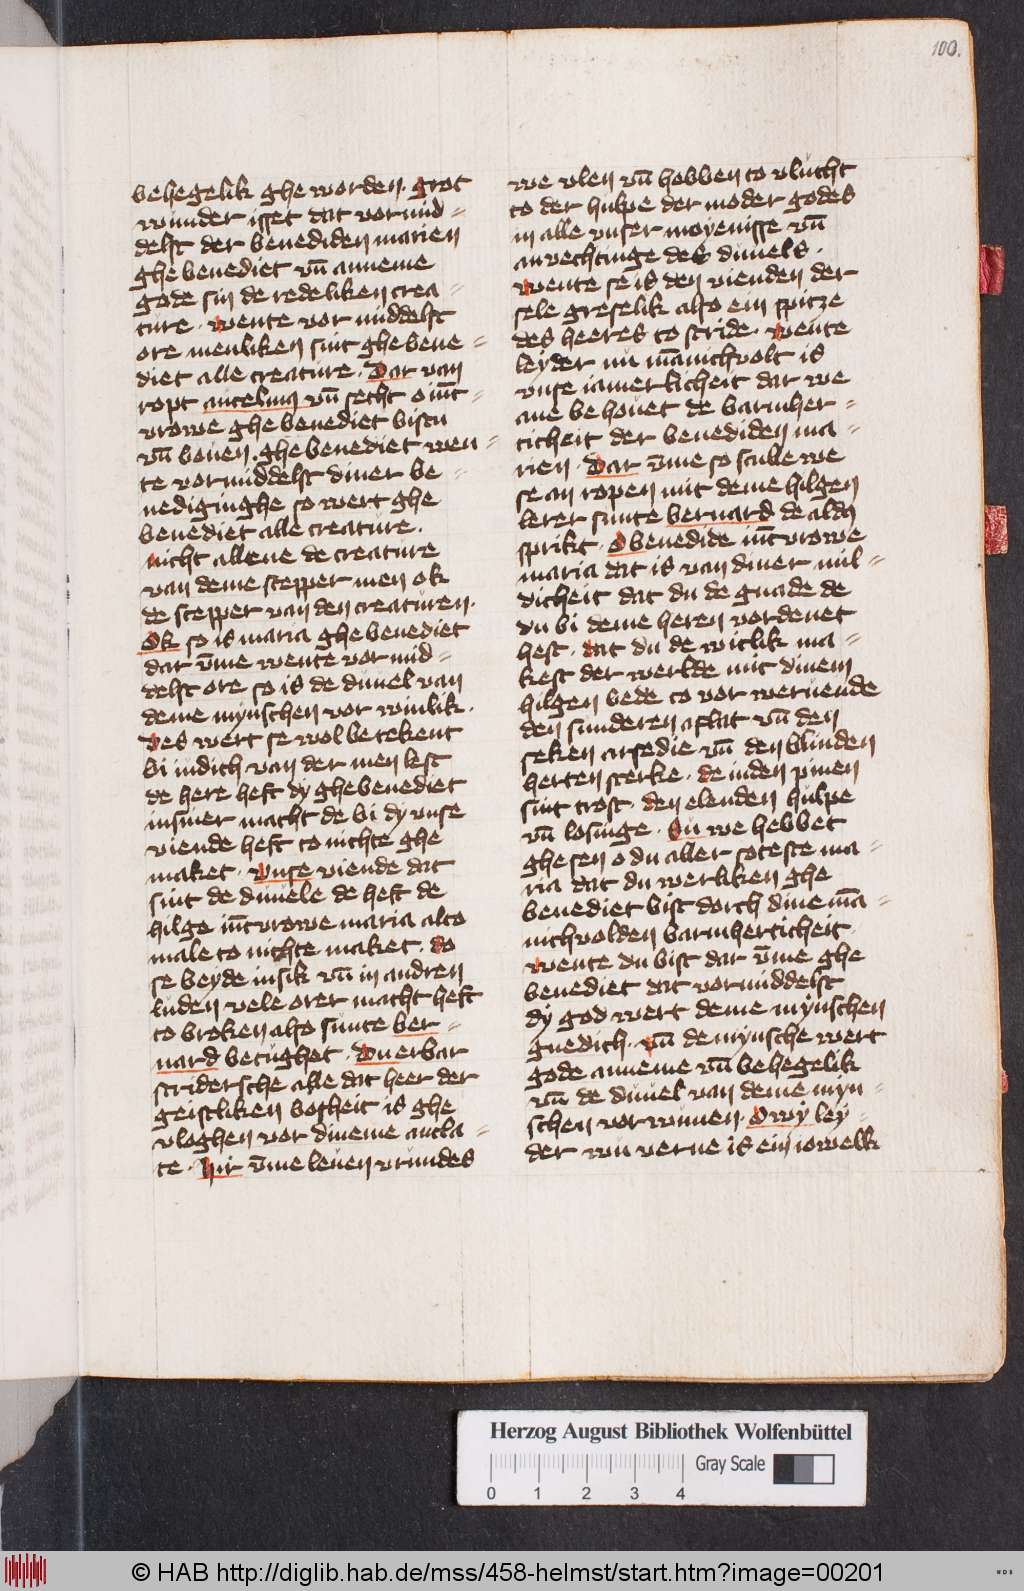 100.
behegelik ghe worden. grot
wunder isset dat vor mid=
delst der benediden marien
ghe benediet vn̄ anneme
gode sin de redeliken crea=
ture. wente vor middelst
ore menliken sint ghe bene=
diet alle creature. Dar van
ropt ancelmꝯ vn̄ secht o iūc=
vrowe ghe benediet bistu
vn̄ bouen ghe benediet wen=
te vor middelst diner be=
nediginghe so wert ghe
benediet alle creature.
nicht allene de creature
van deme scepper men ok
de scepper van den creaturen.
Ok so is maria ghe benediet
dar v̄me wente vor mid=
delst ore so is de duuel van
deme mynschen vor winlik.
Des wert se wol betekent
bi iudich van der men lest
de here heft dy ghe benediet
in siner macht de bi dy vnse
viende heft to nichte ghe
maket. Vnse viende dat
sint de duuele de heft de
hilge iūcvrowe maria alto
male to nichte maket. do
se beyde in sik vn̄ in andren
luden vele orer macht heft
to broken also sunte ber=
nard betughet. Du erbar
stridersche alle dat heer der
geistliken bosheit is ghe
vloghen vor dineme ancla=
te. Hir v̄me leuen vrundes
we vlen vn̄ hebben to vlucht
to der hulpe der moder godes
in alle vnser moyenisse vn̄
anvechtinge des duuels.
wente se is den vienden der
sele greselik also ein spitze
des heeres to stride. wente
leyder nu mānichvolt is
vnse iamerlicheit dar we
ane behouet de barmher=
ticheit der benediden ma=
rien. Dar v̄me so sculle we
se an ropen mit deme hilgen
lerer sunte bernard de aldꝯ
sprikt. O benedide iūcvrowe
maria dat is van diner mil=
dicheit dat du de gnade de
du bi deme heren vordenet
hest. dat du de witlik ma=
kest der werlde mit dinem
hilgen bede to vor weruende
den sunderen aflat vn̄ den
seken arsedie vn̄ den blinden
herten sterke. de in den pinen
sint trost. den elenden hulpe
vn̄ losinge. Nu we hebbet
ghe sen o du aller soteste ma=
ria dat du werliken ghe
benediet bist dorch dine mā=
nichvolden barmherticheit.
wente du bist dar v̄me ghe
benediet dat vor middelst
dy god wert deme mynschen
gnedich. vn̄ de mynsche wert
gode anneme vn̄ behegelik
vn̄ de duuel van deme myn=
schen vor wunnen. Owy ley=
der wu verne is ein iowelk
Herzog August Bibliothek Wolfenbüttel
Gray Scale
0 1 2 3 4
© HAB http://diglib.hab.de/mss/458-helmst/start.htm?image=00201